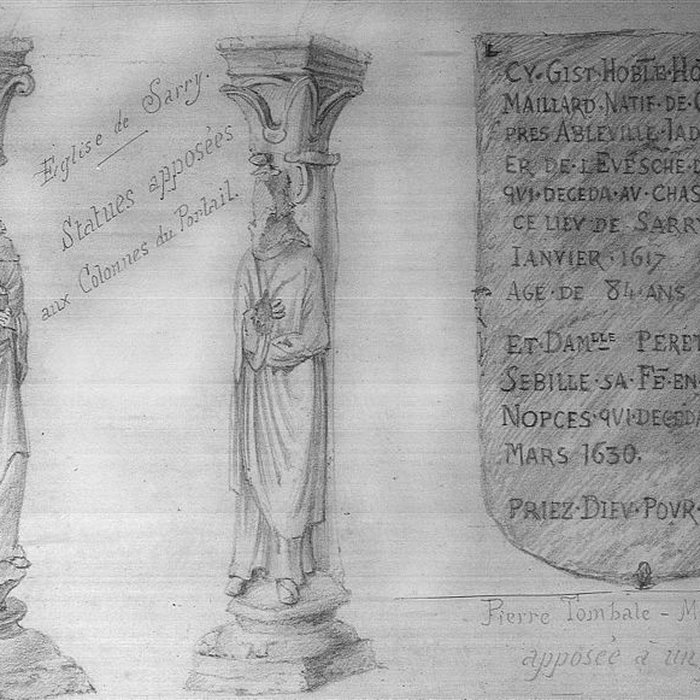 Église de Sarry.
Statues apposées
aux Colonnes du Portail.
CY·GIST·HOBLE·HO
MAILLARD·NATIF·DE·
PRES ABLEVILLE·IAD
ER DE·L'EVESCHE·
QVI·DECEDA·AV·CHAS
CE LIEV·DE SARR
IANVIER·1617
AGE·DE 84·ANS
ET·DAMlle PERET
SEBILLE·SA·FE·EN
NOPCES·QVI·DECEDA
MARS 1630.
PRIEZ·DIEV·POVR·
Pierre Tombale - M
apposée à un